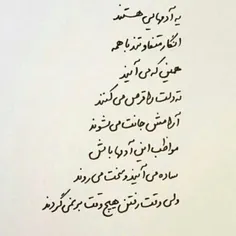 یه آدمهایی هستند
انگار متفاوتند با همه
همین که می آیند
ته دلت را قرص می کنند
آرامش جانت می شوند
مواظب این آدمها باش
ساده می آیند و سخت می روند
ولی وقت رفتن هیچ وقت برنمی گردند